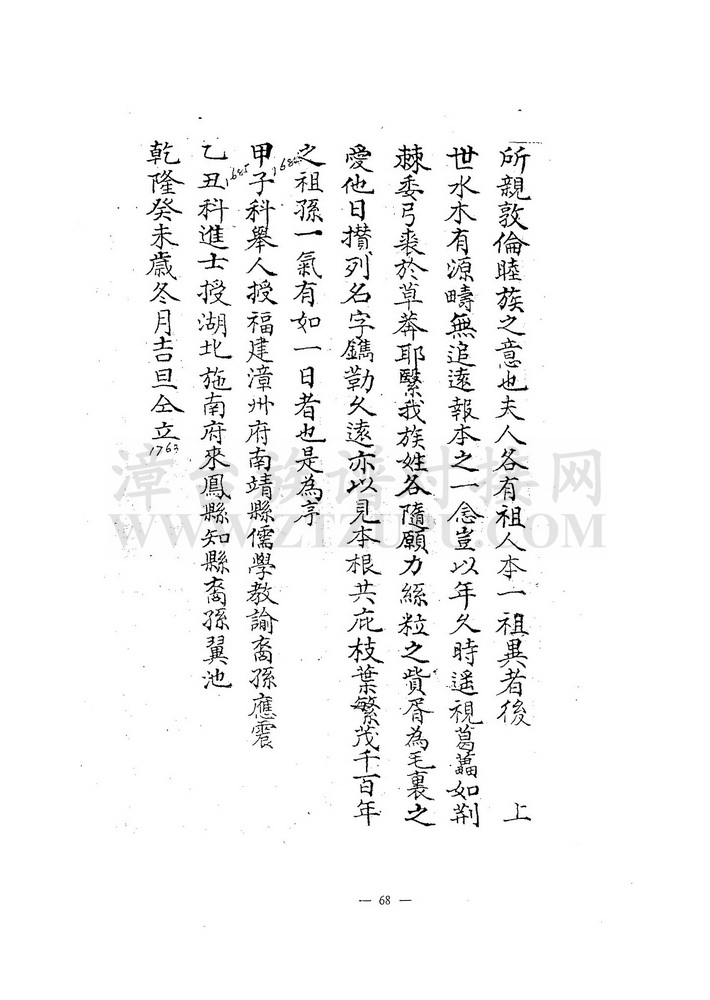 所親敦倫睦族之意也夫人各有祖人本一祖異者後 上
世水木有源疇無追遠報本之一念豈以年久時遥視葛藟如荆
棘委弓裘於草莽耶繄我族姓各隨願力絲粒之貲胥為毛裏之
愛他日攢列名字鐫勒久遠亦以見本根共庇枝葉繁茂千百年
之祖孫一氣有如一日者也是為序
甲子科舉人授福建漳州府南靖縣儒學教諭裔孫應震
乙丑科進士授湖北施南府來鳳縣知縣裔孫翼池
1685
乾隆癸未歲冬月吉旦仝立
1763
漳台族谱对接网
WWW.ZTZUPU.COM
— 68 —